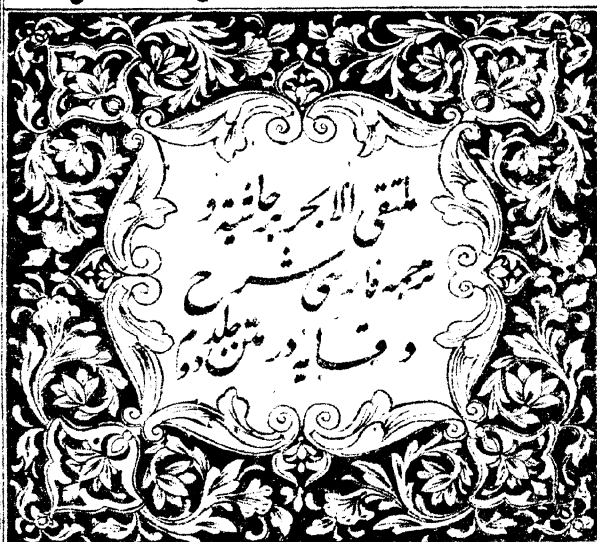 ملتقی الابحر بر حاشیه و
ترجمه فارسی شرح
وقایه در متن جلد دوم